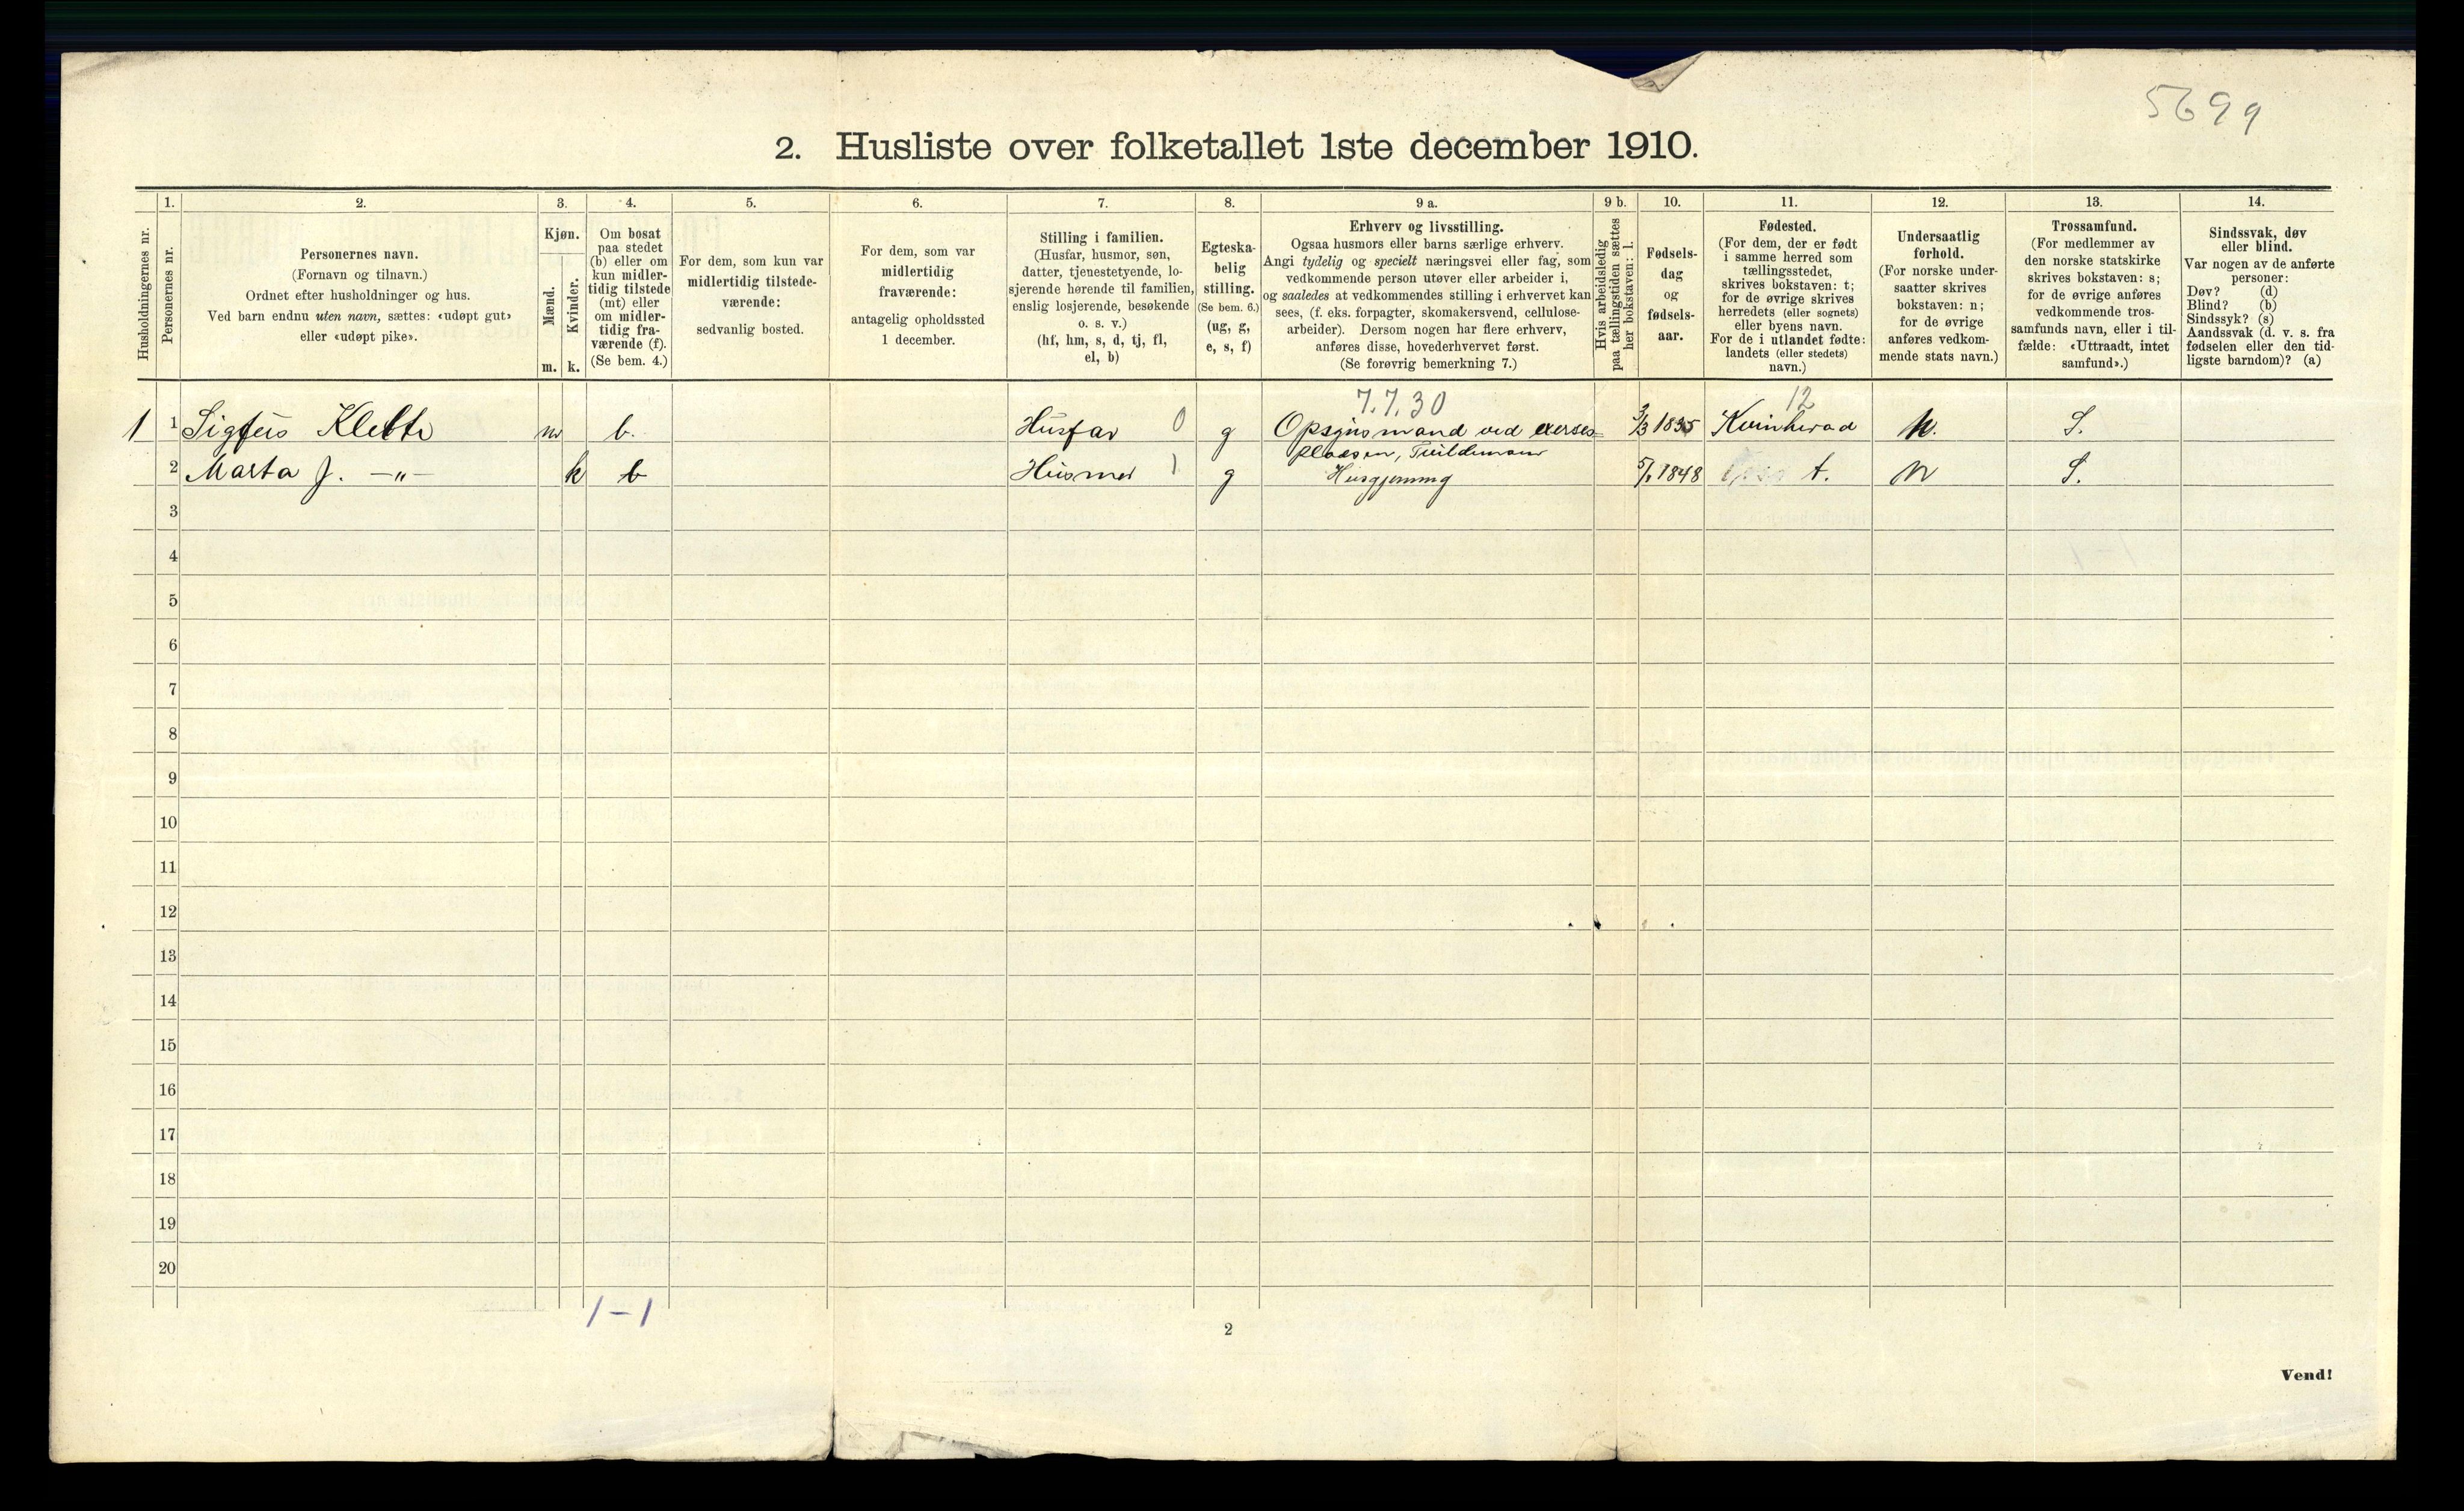 5699
2. Husliste over folketallet 1ste december 1910.
Husholdningernes nr.
1.
Personernes nr.
2.
Personernes navn.
(Fornavn og tilnavn.)
Ordnet efter husholdninger og hus.
Ved barn endnu uten navn, sættes: «udøpt gut»
eller «udøpt pike».
3.
Kjøn.
Mænd.
Kvinder.
m. k.
4.
Om bosat
paa stedet
(b) eller om
kun midler-
tidig tilstede
(mt) eller
om midler-
tidig fra-
værende (f).
(Se bem. 4.)
5.
For dem, som kun var
midlertidig tilstede-
værende:
sedvanlig bosted.
6.
For dem, som var
midlertidig
fraværende:
antagelig opholdssted
1 december.
7.
Stilling i familien.
(Husfar, husmor, søn,
datter, tjenestetyende, lo-
sjerende hørende til familien,
enslig losjerende, besøkende
o. s. v.)
(hf, hm, s, d, tj, fl,
el, b)
8.
Egteska-
belig
stilling.
(Se bem. 6.)
(ug, g,
e, s, f)
9 a.
Erhverv og livsstilling.
Ogsaa husmors eller barns særlige erhverv.
Angi tydelig og specielt næringsvei eller fag, som
vedkommende person utøver eller arbeider i,
og saaledes at vedkommendes stilling i erhvervet kan
sees, (f. eks. forpagter, skomakersvend, cellulose-
arbeider). Dersom nogen har flere erhverv,
anføres disse, hovederhvervet først.
(Se forøvrig bemerkning 7.)
9 b.
Hvis arbeidsledig
paa tællingstiden sættes
her bokstaven: l.
10.
Fødsels-
dag
og
fødsels-
aar.
11.
Fødested.
(For dem, der er født
i samme herred som
tællingsstedet,
skrives bokstaven: t;
for de øvrige skrives
herredets (eller sognets)
eller byens navn.
For de i utlandet fødte:
landets (eller stedets)
navn.)
12.
Undersaatlig
forhold.
(For norske under-
saatter skrives
bokstaven: n;
for de øvrige
anføres vedkom-
mende stats navn.)
13.
Trossamfund.
(For medlemmer av
den norske statskirke
skrives bokstaven: s;
for de øvrige anføres
vedkommende tros-
samfunds navn, eller i til-
fælde: «Uttraadt, intet
samfund».)
14.
Sindssvak, døv
eller blind.
Var nogen av de anførte
personer:
Døv? (d)
Blind? (b)
Sindssyk? (s)
Aandssvak (d. v. s. fra
fødselen eller den tid-
ligste barndom)? (a)
7.7.30 12
1 1 Sigfus Klette m b. Husfar 0 g Opsynsmand ved exerses- 3/3 1835 Kvinherad n. S.
pladsen,
2 Marta J. —"— k b Husmor 1 g Husgjerning 1848 t. n S.
3
4
5
6
7
8
9
10
11
12
13
14
15
16
17
18
19
20
1 – 1
2
Vend!